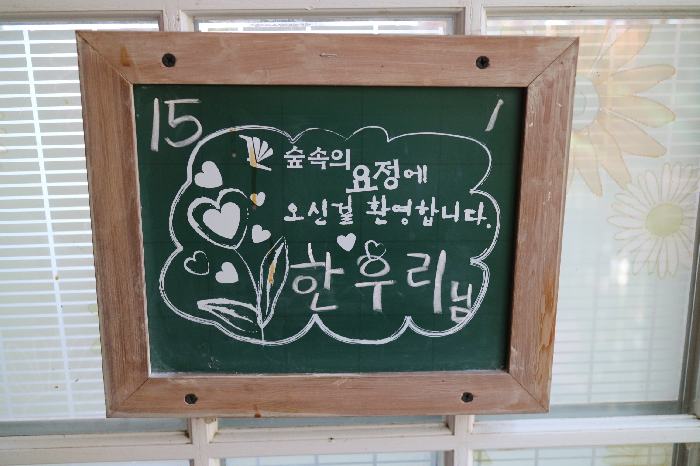 15
숲속의
요정에
오신걸 환영합니다.
한우리님